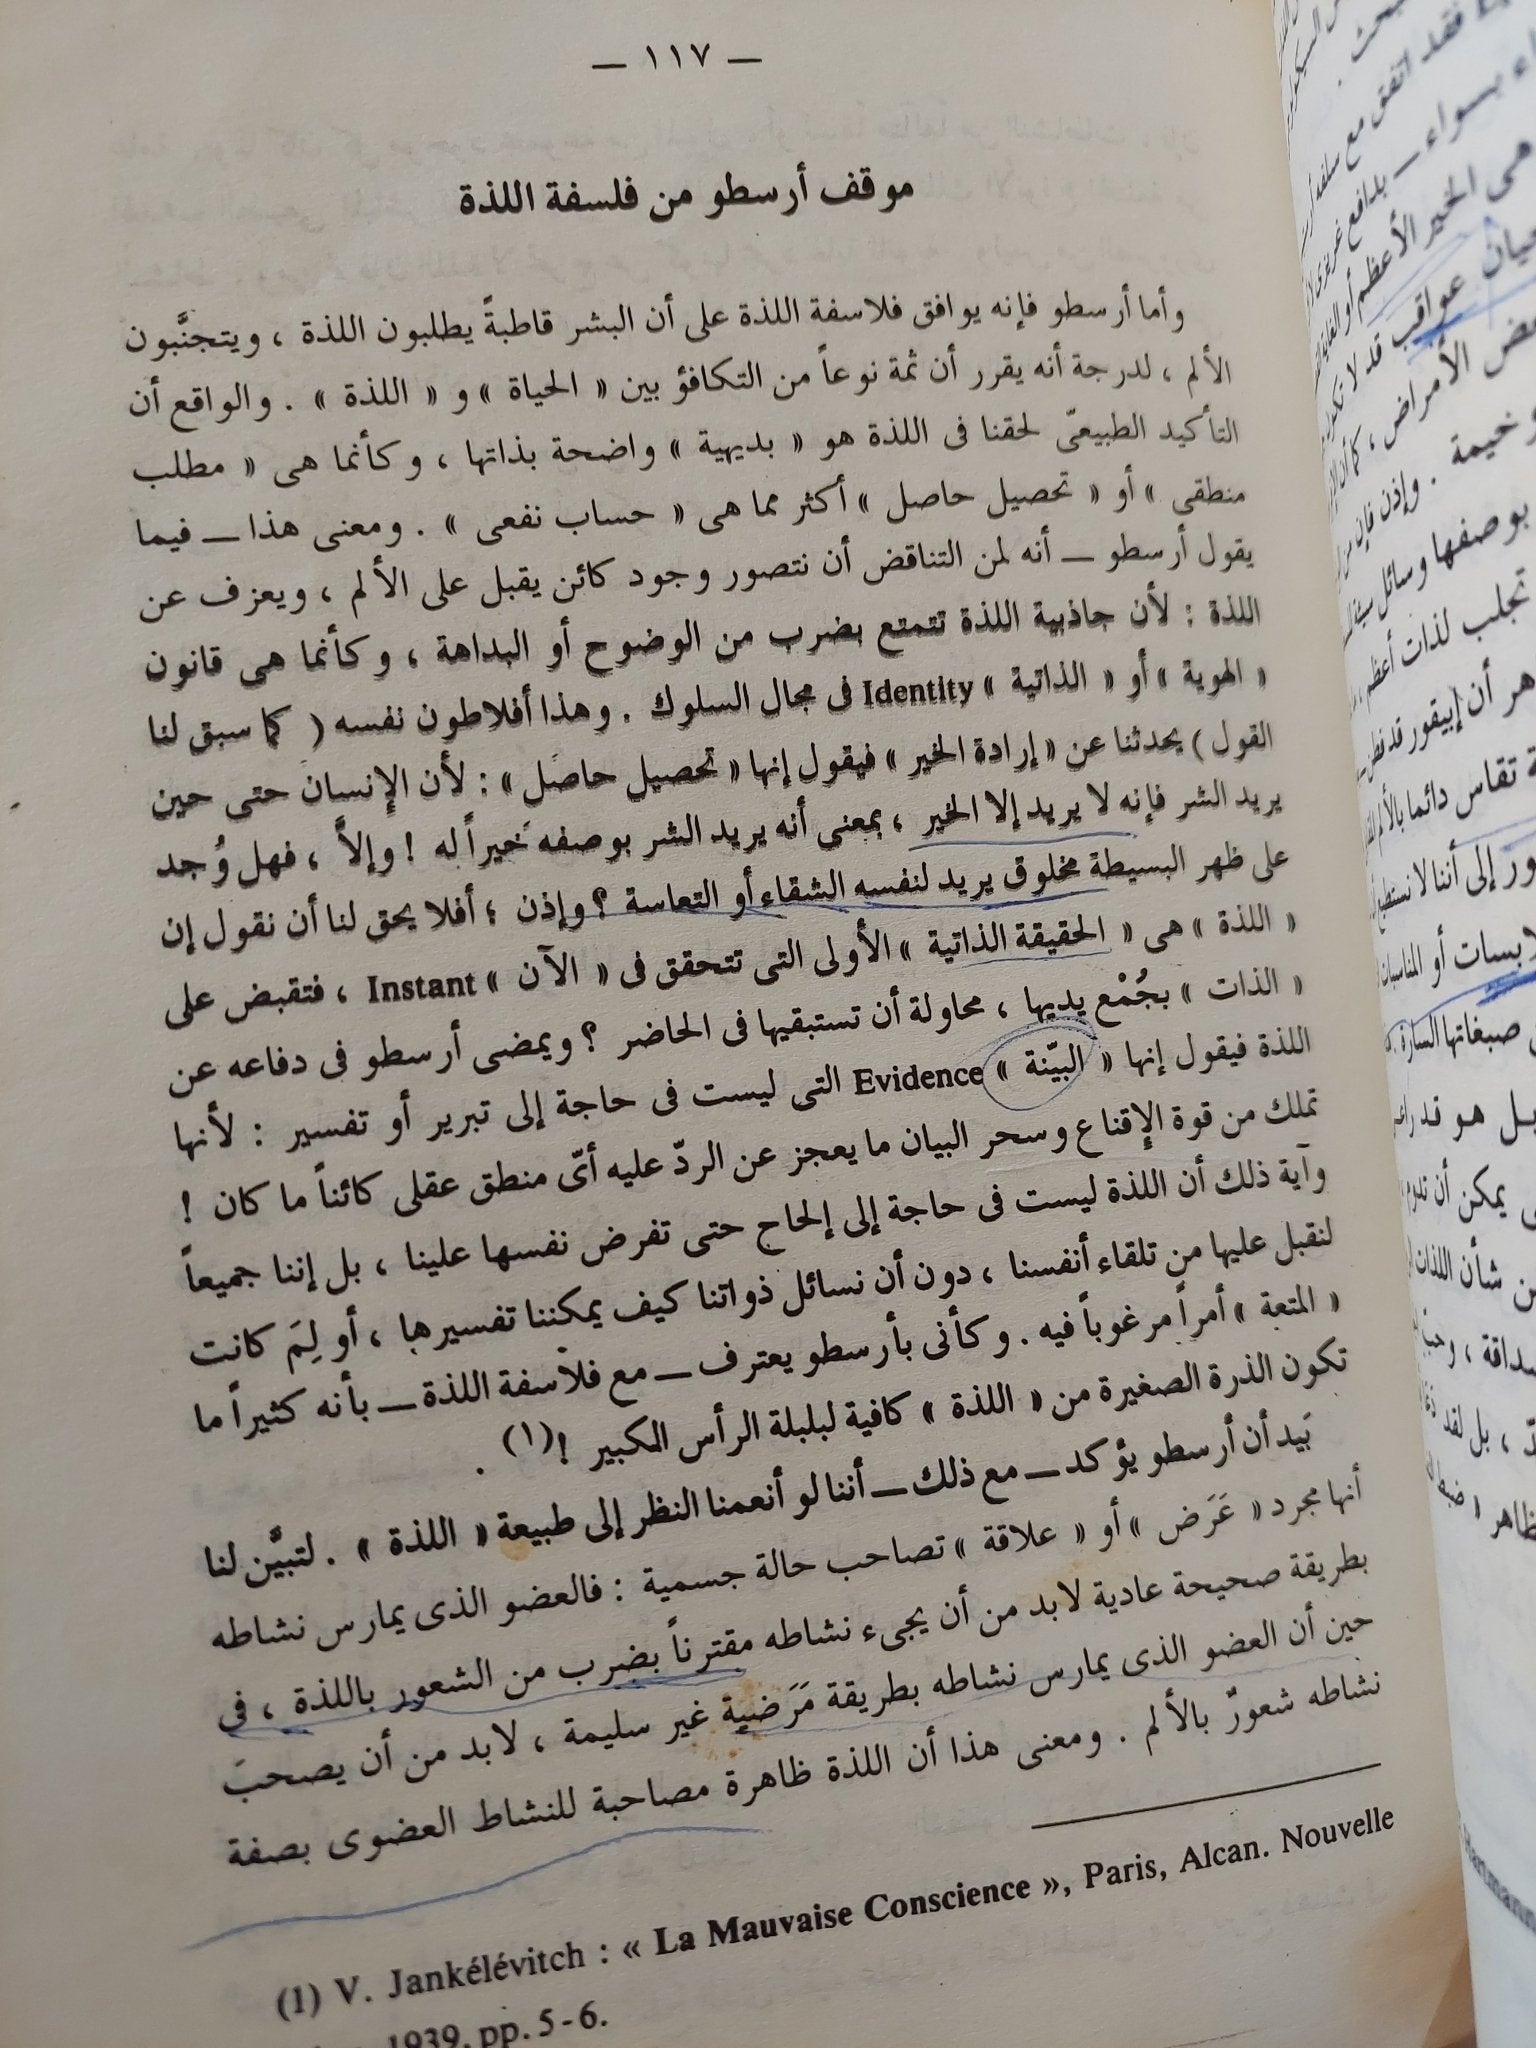 — ١١٧ —
موقف أرسطو من فلسفة اللذة
وأما أرسطو فإنه يوافق فلاسفة اللذة على أن البشر قاطبةً يطلبون اللذة ، ويتجنَّبون
الألم ، لدرجة أنه يقرر أن ثمة نوعاً من التكافؤ بين « الحياة » و « اللذة » . والواقع أن
التأكيد الطبيعىّ لحقنا فى اللذة هو « بديهية » واضحة بذاتها ، وكأنما هى « مطلب
منطقى » أو « تحصيل حاصل » أكثر مما هى « حساب نفعى » . ومعنى هذا — فيما
يقول أرسطو — أنه لمن التناقض أن نتصور وجود كائن يقبل على الألم ، ويعزف عن
اللذة : لأن جاذبية اللذة تتمتع بضرب من الوضوح أو البداهة ، وكأنما هى قانون
« الهوية » أو « الذاتية » Identity فى مجال السلوك . وهذا أفلاطون نفسه ( كما سبق لنا
القول ) يحدثنا عن « إرادة الخير » فيقول إنها « تحصيل حاصل » : لأن الإنسان حتى حين
يريد الشر فإنه لا يريد إلا الخير ، بمعنى أنه يريد الشر بوصفه خيراً له ! وإلاَّ ، فهل وُجد
على ظهر البسيطة مخلوق يريد لنفسه الشقاء أو التعاسة ؟ وإذن ؛ أفلا يحق لنا أن نقول إن
« اللذة » هى « الحقيقة الذاتية » الأولى التى تتحقق فى « الآن » Instant ، فتقبض على
« الذات » بجُمْع يديها ، محاولة أن تستبقيها فى الحاضر ؟ ويمضى أرسطو فى دفاعه عن
اللذة فيقول إنها « البيّنة » Evidence التى ليست فى حاجة إلى تبرير أو تفسير : لأنها
تملك من قوة الإقناع وسحر البيان ما يعجز عن الردّ عليه أىّ منطق عقلى كائناً ما كان !
وآية ذلك أن اللذة ليست فى حاجة إلى إلحاح حتى تفرض نفسها علينا ، بل إننا جميعاً
لنقبل عليها من تلقاء أنفسنا ، دون أن نسائل ذواتنا كيف يمكننا تفسيرها ، أو لِمَ كانت
« المتعة » أمراً مرغوباً فيه . وكأنى بأرسطو يعترف — مع فلاسفة اللذة — بأنه كثيراً ما
تكون الذرة الصغيرة من « اللذة » كافية لبلبلة الرأس المكبير !(١) .
بَيد أن أرسطو يؤكد — مع ذلك — أننا لو أنعمنا النظر إلى طبيعة « اللذة » . لتبيَّن لنا
أنها مجرد « عَرَض » أو « علاقة » تصاحب حالة جسمية : فالعضو الذى يمارس نشاطه
بطريقة صحيحة عادية لابد من أن يجىء نشاطه مقترناً بضرب من الشعور باللذة ، فى
حين أن العضو الذى يمارس نشاطه بطريقة مَرَضية غير سليمة ، لابد من أن يصحبَ
نشاطه شعورٌ بالألم . ومعنى هذا أن اللذة ظاهرة مصاحبة للنشاط العضوى بصفة
(1) V. Jankélévitch : « La Mauvaise Conscience », Paris, Alcan. Nouvelle
1939, pp. 5-6.